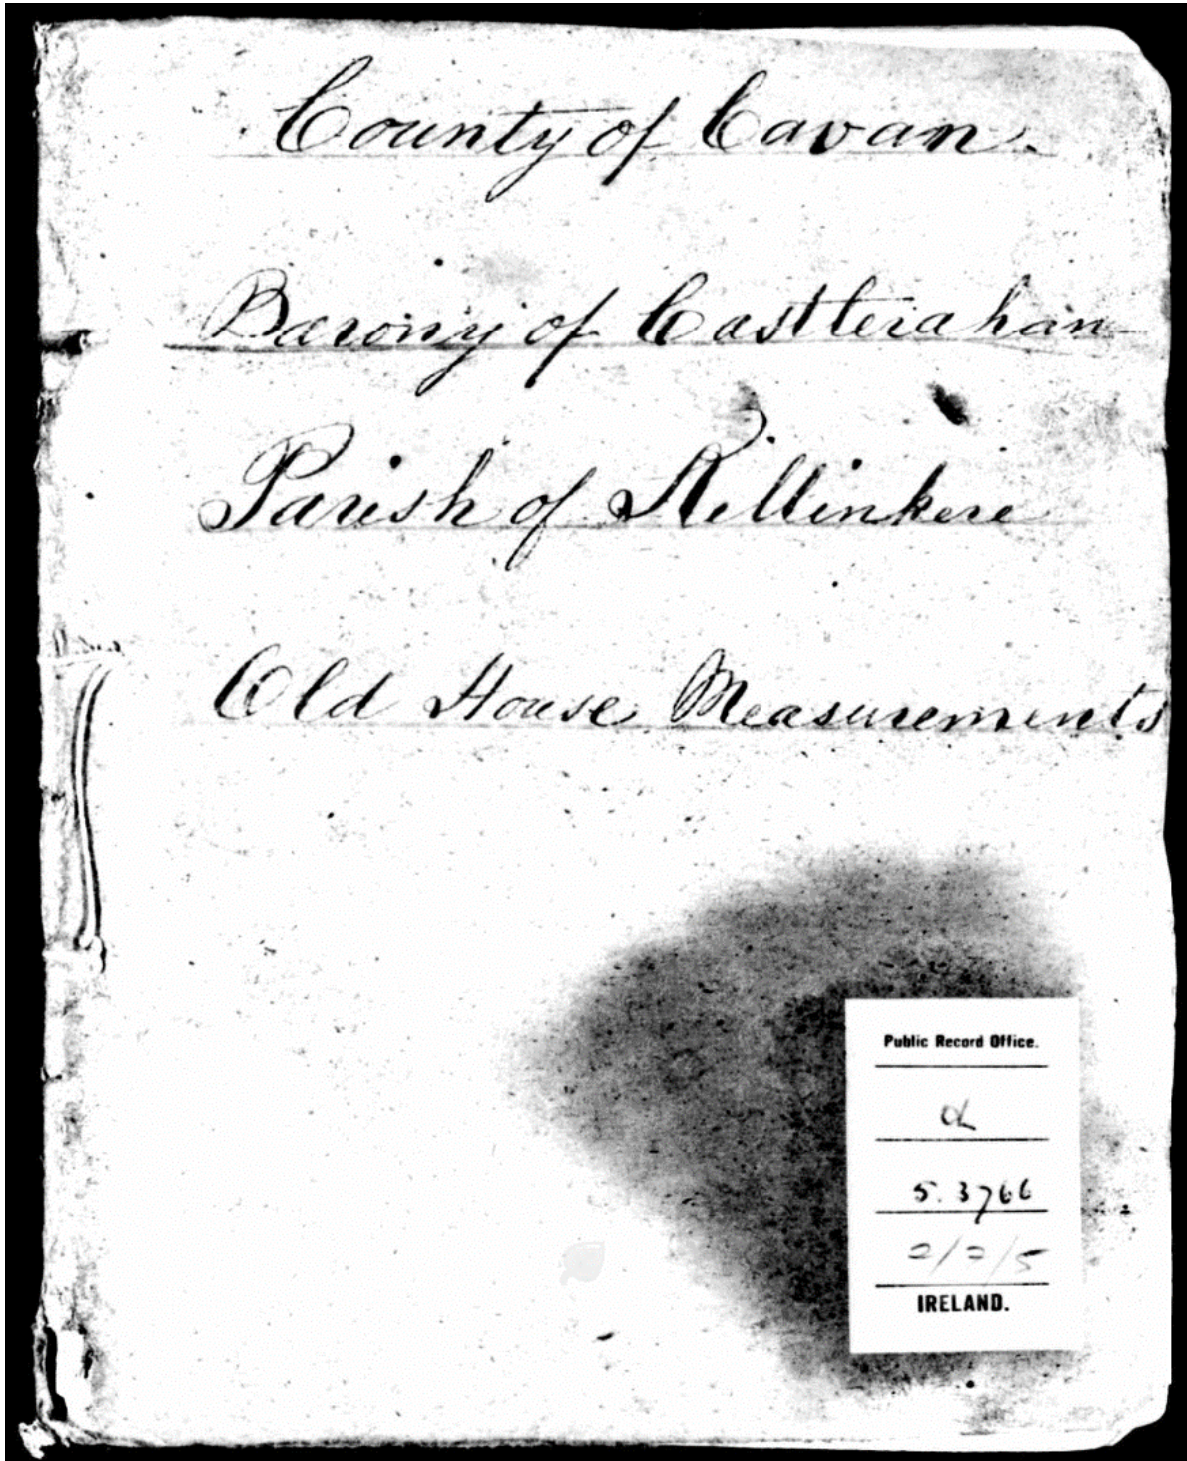 County of Cavan.
Barony of Castlerahan
Parish of Killinkere
Old House Measurements
Public Record Office.
OL
5.3766
2/2/5
IRELAND.